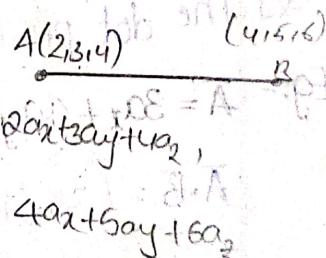 A(2,3,4) (4,5,6)
B
2ax+3ay+4az,
4ax+5ay+6az